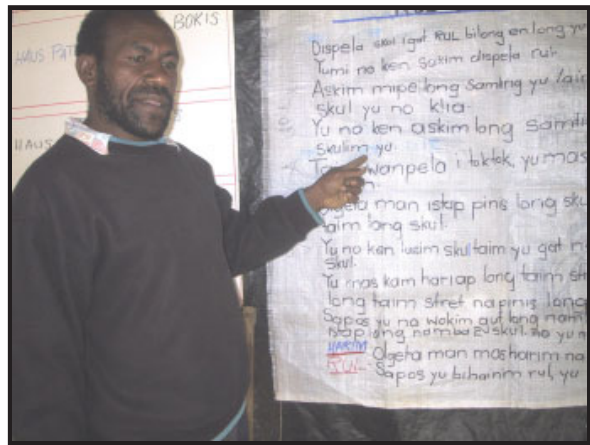 BOKIS
HAUS
HAUS
Dispela skul igat RUL bilong en long yu
Yumi no ken sakim dispela rul.
Askim mipela long samting yu
skul yu no klia.
Yu no ken askim long
skulim yu.
wanpela i toktok, yu mas
Olgeta man istap pinis long
taim long skul.
Yu no ken lusim skul taim yu gat
skul.
Yu mas kam hariap long taim
long taim stret na pinis long
Sapos yu no wokim gut long
istap long namba skul. no yu
HARIM Olgeta man mas harim na
RUL- Sapos yu bihainim rul, yu